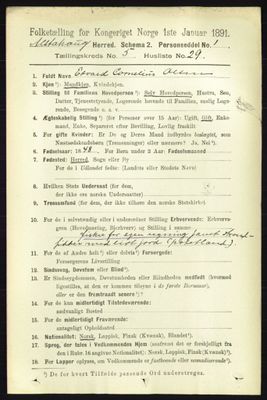 Folketælling for Kongeriget Norge 1ste Januar 1891.
Herred. Schema 2. Personseddel No. 1
Tællingskreds No. 5 Husliste No. 29.
1. Fuldt Navn Edvard Cornelius
2. Kjøn ¹): Mandkjøn, Kvindekjøn.
3. Stilling til Familiens Hovedperson ¹): Selv Hovedperson, Hustru, Søn,
Datter, Tjenestetyende, Logerende hørende til Familien, enslig Loge-
rende, Besøgende o. s. v.
4. Ægteskabelig Stilling ¹) (for Personer over 15 Aar): Ugift, Gift, Enke-
mand, Enke, Separeret eller Bevilling, Lovlig fraskilt
5. For gifte Kvinder: Er De og Deres Mand indbyrdes beslægtet, som
Nestsødskendebørn (Tremenninger) eller nærmere? Ja, Nei ¹).
6. Fødselsaar: 1848. For Børn under 2 Aar: Fødselsmaaned
7. Fødested: Herred, Sogn eller By
For de i Udlandet fødte: (Landets eller Stedets Navn)
8. Hvilken Stats Undersaat (for dem,
der ikke ere norske Undersaatter)
9. Trossamfund (for dem, der ikke tilhøre den norske Statskirke)
10. For de i selvstændig eller i underordnet Stilling Erhvervende: Erhvervs-
gren (Hovednæring, Bierhverv) og Stilling i samme
Fisker for egen regning samt
med
11. For de af Andre helt ¹) eller delvis ¹) Forsørgede:
Forsørgerens Livsstilling
12. Sindssvag, Døvstum eller Blind ¹).
13. Er Sindssygdommen, Døvstumheden eller Blindheden medfødt (hvormed
ligestilles, at den er kommen tilsyne i de første Barneaar),
eller er den fremtraadt senere ¹)?
14. For de kun midlertidigt Tilstedeværende:
sædvanligt Bosted
15. For de midlertidigt Fraværende:
antageligt Opholdssted
16. Nationalitet: Norsk, Lappisk, Finsk (Kvænsk), Blandet ¹).
17. Sprog, der tales i Vedkommendes Hjem (saafremt det er forskjelligt fra
den i Rubr. 16 angivne Nationalitet): Norsk, Lappisk, Finsk (Kvænsk) ¹).
18. For Lapper oplyses, om Vedkommende er fastboende eller nomadiserende ¹).
¹) De for hvert Tilfælde passende Ord understreges.